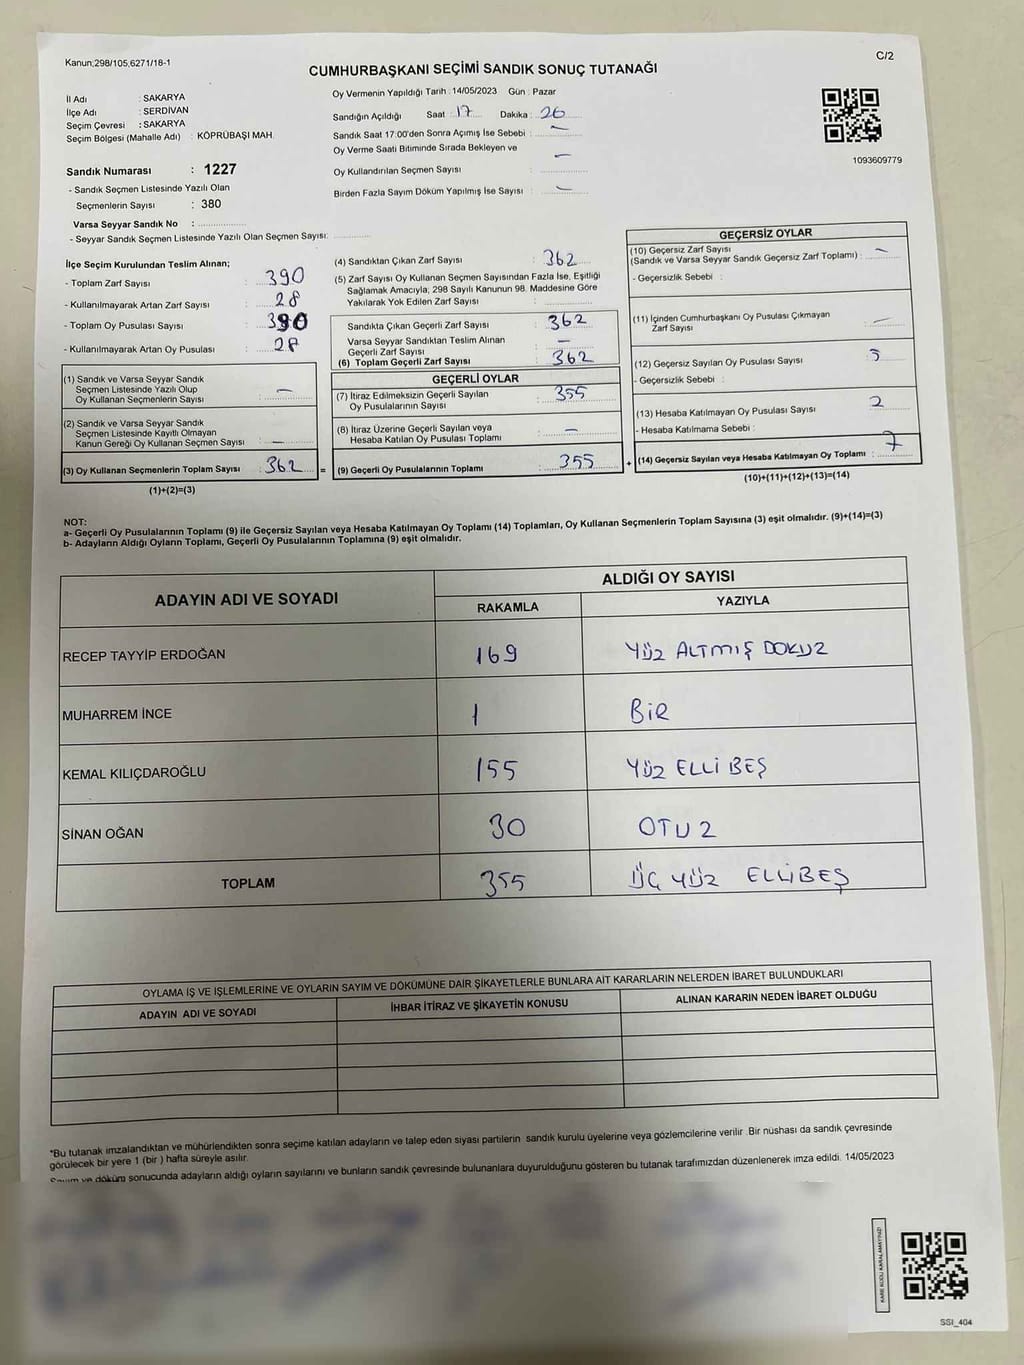 Kanun;298/105,6271/18-1
C/2
CUMHURBAŞKANI SEÇİMİ SANDIK SONUÇ TUTANAĞI
İl Adı : SAKARYA
İlçe Adı : SERDİVAN
Seçim Çevresi : SAKARYA
Seçim Bölgesi (Mahalle Adı) : KÖPRÜBAŞI MAH.
Sandık Numarası : 1227
- Sandık Seçmen Listesinde Yazılı Olan
Seçmenlerin Sayısı : 380
Varsa Seyyar Sandık No :
- Seyyar Sandık Seçmen Listesinde Yazılı Olan Seçmen Sayısı:
Oy Vermenin Yapıldığı Tarih : 14/05/2023 Gün : Pazar
Sandığın Açıldığı Saat : 17 Dakika : 26
Sandık Saat 17:00'den Sonra Açımış İse Sebebi : —
Oy Verme Saati Bitiminde Sırada Bekleyen ve
Oy Kullandırılan Seçmen Sayısı : —
Birden Fazla Sayım Döküm Yapılmış İse Sayısı : —
1093609779
İlçe Seçim Kurulundan Teslim Alınan;
- Toplam Zarf Sayısı : 390
- Kullanılmayarak Artan Zarf Sayısı : 28
- Toplam Oy Pusulası Sayısı : 390
- Kullanılmayarak Artan Oy Pusulası : 28
(1) Sandık ve Varsa Seyyar Sandık
Seçmen Listesinde Yazılı Olup
Oy Kullanan Seçmenlerin Sayısı : —
(2) Sandık ve Varsa Seyyar Sandık
Seçmen Listesinde Kayıtlı Olmayan
Kanun Gereği Oy Kullanan Seçmen Sayısı : —
(3) Oy Kullanan Seçmenlerin Toplam Sayısı : 362 =
(1)+(2)=(3)
(4) Sandıktan Çıkan Zarf Sayısı : 362
(5) Zarf Sayısı Oy Kullanan Seçmen Sayısından Fazla İse, Eşitliği
Sağlamak Amacıyla; 298 Sayılı Kanunun 98. Maddesine Göre
Yakılarak Yok Edilen Zarf Sayısı :
Sandıkta Çıkan Geçerli Zarf Sayısı : 362
Varsa Seyyar Sandıktan Teslim Alınan
Geçerli Zarf Sayısı : —
(6) Toplam Geçerli Zarf Sayısı : 362
GEÇERLİ OYLAR
(7) İtiraz Edilmeksizin Geçerli Sayılan
Oy Pusulalarının Sayısı : 355
(8) İtiraz Üzerine Geçerli Sayılan veya
Hesaba Katılan Oy Pusulası Toplamı : —
(9) Geçerli Oy Pusulalarının Toplamı : 355 +
GEÇERSİZ OYLAR
(10) Geçersiz Zarf Sayısı
(Sandık ve Varsa Seyyar Sandık Geçersiz Zarf Toplamı) : —
- Geçersizlik Sebebi :
(11) İçinden Cumhurbaşkanı Oy Pusulası Çıkmayan
Zarf Sayısı : —
(12) Geçersiz Sayılan Oy Pusulası Sayısı : 5
- Geçersizlik Sebebi :
(13) Hesaba Katılmayan Oy Pusulası Sayısı : 2
- Hesaba Katılmama Sebebi :
(14) Geçersiz Sayılan veya Hesaba Katılmayan Oy Toplamı : 7
(10)+(11)+(12)+(13)=(14)
NOT:
a- Geçerli Oy Pusulalarının Toplamı (9) ile Geçersiz Sayılan veya Hesaba Katılmayan Oy Toplamı (14) Toplamları, Oy Kullanan Seçmenlerin Toplam Sayısına (3) eşit olmalıdır. (9)+(14)=(3)
b- Adayların Aldığı Oyların Toplamı, Geçerli Oy Pusulalarının Toplamına (9) eşit olmalıdır.
ADAYIN ADI VE SOYADI ALDIĞI OY SAYISI
RAKAMLA YAZIYLA
RECEP TAYYİP ERDOĞAN 169 YÜZ ALTMIŞ DOKUZ
MUHARREM İNCE 1 BİR
KEMAL KILIÇDAROĞLU 155 YÜZ ELLİ BEŞ
SİNAN OĞAN 30 OTUZ
TOPLAM 355 ÜÇ YÜZ ELLİBEŞ
OYLAMA İŞ VE İŞLEMLERİNE VE OYLARIN SAYIM VE DÖKÜMÜNE DAİR ŞİKAYETLERLE BUNLARA AİT KARARLARIN NELERDEN İBARET BULUNDUKLARI
ADAYIN ADI VE SOYADI İHBAR İTİRAZ VE ŞİKAYETİN KONUSU ALINAN KARARIN NEDEN İBARET OLDUĞU
*Bu tutanak imzalandıktan ve mühürlendikten sonra seçime katılan adayların ve talep eden siyası partilerin sandık kurulu üyelerine veya gözlemcilerine verilir .Bir nüshası da sandık çevresinde
görülecek bir yere 1 (bir ) hafta süreyle asılır.
Sayım ve döküm sonucunda adayların aldığı oyların sayılarını ve bunların sandık çevresinde bulunanlara duyurulduğunu gösteren bu tutanak tarafımızdan düzenlenerek imza edildi. 14/05/2023
KARE KODU KARALAMAYINIZ!
SSI_404